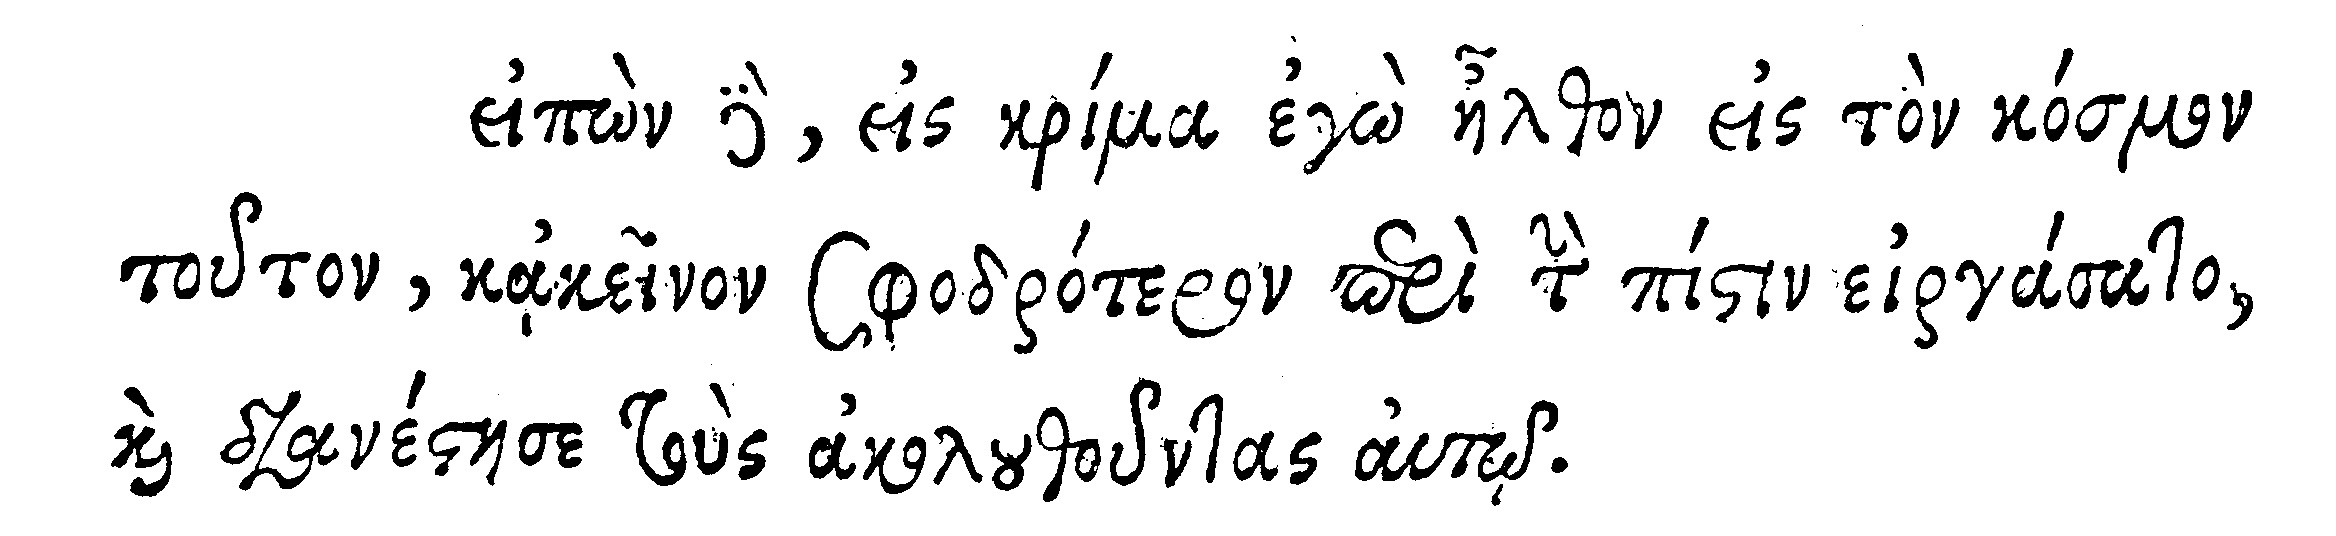 εἰπὼν γὰρ, εἰς κρίμα ἐγὼ ἦλθον εἰς τὸν κόσμον
τοῦτον, κᾀκεῖνον σφοδρότερον περὶ τὴν πίστιν εἰργάσατο,
καὶ διανέστησε τοὺς ἀκολουθοῦντας ἀυτῷ.